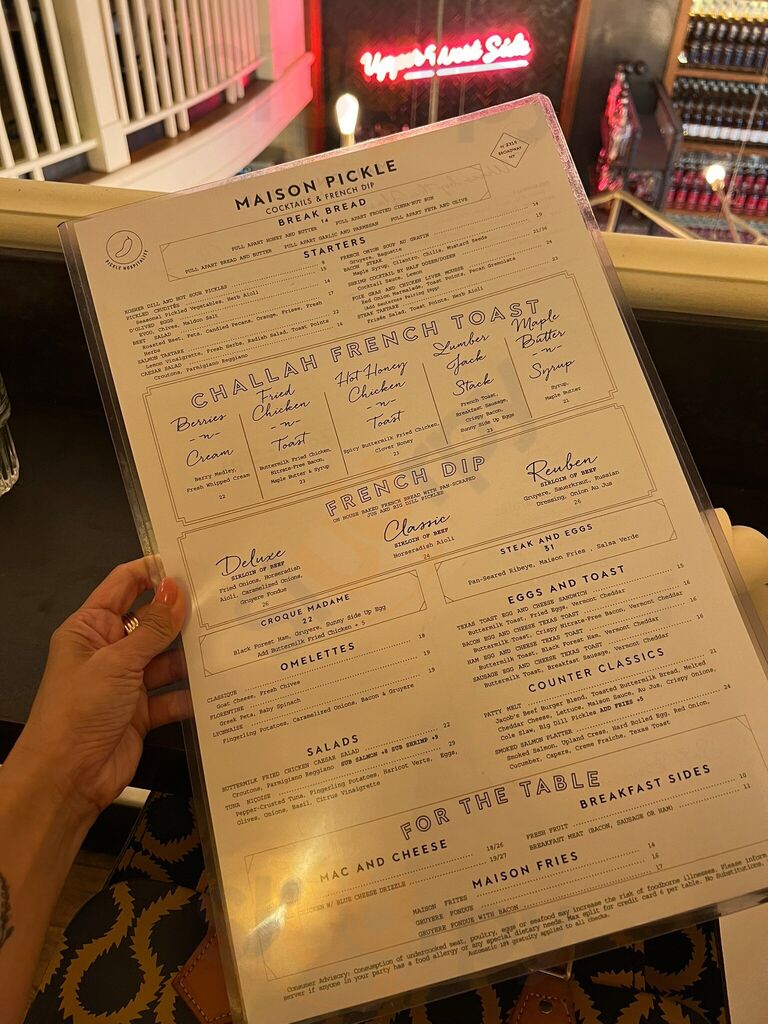 Upper West Side
Nº 2315
BROADWAY
NY
PICKLE HOSPITALITY
MAISON PICKLE
COCKTAILS & FRENCH DIP
BREAK BREAD
14
PULL APART HONEY AND BUTTER PULL APART FROSTED CINNA-NUT BUN
PULL APART BREAD AND BUTTER PULL APART GARLIC AND PARMESAN PULL APART FETA AND OLIVE
STARTERS
KOSHER DILL AND HOT SOUR PICKLES 8
PICKLED CRUDITÉS
Seasonal Pickled Vegetables, Herb Aioli
D'OLIVED EGGS
EVOO, Chives, Maldon Salt
BEET SALAD
Roasted Beet, Feta, Candied Pecans, Orange, Frisee, Fresh
Herbs
SALMON TARTARE
Lemon Vinaigrette, Fresh Herbs, Radish Salad, Toast Points
CAESAR SALAD 14
Croutons, Parmigiano Reggiano
FRENCH ONION SOUP AU GRATIN 14
Gruyere, Baguette
BACON STEAK 19
Maple Syrup, Cilantro, Chilis, Mustard Seeds
SHRIMP COCKTAIL BY HALF DOZEN/DOZEN 21/36
Cocktail Sauce, Lemon
FOIE GRAS AND CHICKEN LIVER MOUSSE 24
Red Onion Marmalade, Toast Points, Pecan Gremolata
Add Sauternes Pairing
STEAK TARTARE 23
Frisée Salad, Toast Points, Herb Aioli
CHALLAH FRENCH TOAST
Berries
-n-
Cream
Berry Medley,
Fresh Whipped Cream
22
Fried
Chicken
-n-
Toast
Buttermilk Fried Chicken,
Nitrate-Free Bacon,
Maple Butter & Syrup
23
Hot Honey
Chicken
-n-
Toast
Spicy Buttermilk Fried Chicken,
Clover Honey
23
Lumber
Jack
Stack
French Toast,
Breakfast Sausage,
Crispy Bacon,
Sunny Side Up Eggs
23
Maple
Butter
-n-
Syrup
Syrup,
Maple Butter
21
FRENCH DIP
ON HOUSE BAKED FRENCH BREAD WITH PAN-SCRAPED
JUS AND BIG DILL PICKLES
Deluxe
SIRLOIN OF BEEF
Fried Onions, Horseradish
Aioli, Caramelized Onions,
Gruyere Fondue
26
Classic
SIRLOIN OF BEEF
Horseradish Aioli
24
Reuben
SIRLOIN OF BEEF
Gruyere, Sauerkraut, Russian
Dressing, Onion Au Jus
26
CROQUE MADAME
22
Black Forest Ham, Gruyere, Sunny Side Up Egg
Add Buttermilk Fried Chicken + 5
OMELETTES
CLASSIQUE 18
Goat Cheese, Fresh Chives
FLORENTINE 19
Greek Feta, Baby Spinach
LYONNAISE 19
Fingerling Potatoes, Caramelized Onions, Bacon & Gruyere
SALADS
BUTTERMILK FRIED CHICKEN CAESAR SALAD 22
Croutons, Parmigiano Reggiano SUB SALMON +8 SUB SHRIMP +9
TUNA NIÇOISE 29
Pepper-Crusted Tuna, Fingerling Potatoes, Haricot Verts, Eggs,
Olives, Onions, Basil, Citrus Vinaigrette
STEAK AND EGGS
31
Pan-Seared Ribeye, Maison Fries, Salsa Verde
EGGS AND TOAST
TEXAS TOAST EGG AND CHEESE SANDWICH 15
Buttermilk Toast, Fried Eggs, Vermont Cheddar
BACON EGG AND CHEESE TEXAS TOAST 16
Buttermilk Toast, Crispy Nitrate-Free Bacon, Vermont Cheddar
HAM EGG AND CHEESE TEXAS TOAST 16
Buttermilk Toast, Black Forest Ham, Vermont Cheddar
SAUSAGE EGG AND CHEESE TEXAS TOAST 16
Buttermilk Toast, Breakfast Sausage, Vermont Cheddar
COUNTER CLASSICS
PATTY MELT 21
Jacob's Beef Burger Blend, Toasted Buttermilk Bread, Melted
Cheddar Cheese, Lettuce, Maison Sauce, Au Jus, Crispy Onions,
Cole Slaw, Big Dill Pickles ADD FRIES +5
SMOKED SALMON PLATTER 24
Smoked Salmon, Upland Cress, Hard Boiled Egg, Red Onion,
Cucumber, Capers, Creme Fraiche, Texas Toast
FOR THE TABLE
MAC AND CHEESE
18/26
CHICKEN W/ BLUE CHEESE DRIZZLE 19/27
BREAKFAST SIDES
FRESH FRUIT 10
BREAKFAST MEAT (BACON, SAUSAGE OR HAM) 11
MAISON FRIES
MAISON FRITES 14
GRUYERE FONDUE 16
GRUYERE FONDUE WITH BACON 17
Consumer Advisory: Consumption of undercooked meat, poultry, eggs or seafood may increase the risk of foodborne illnesses. Please inform
server if anyone in your party has a food allergy or any special dietary needs. Max split for credit card 6 per table. No Substitutions.
Automatic 18% gratuity applied to all checks.